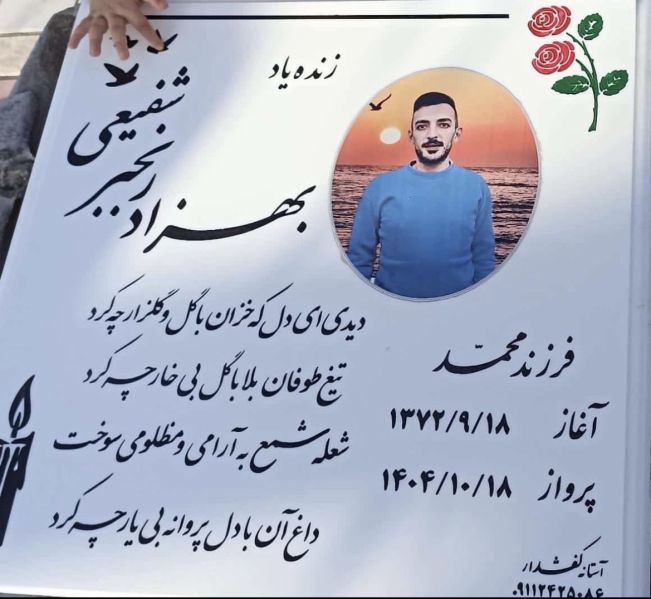 زنده یاد
بهزاد رنجبر شفیعی
دیدی ای دل که خزان با گل و گلزار چه کرد
تیغ طوفان بلا با گل بی خار چه کرد
شعله شمع به آرامی و مظلومی سوخت
داغ آن با دل پروانه بی یار چه کرد
فرزند محمّد
آغاز ۱۳۷۲/۹/۱۸
پرواز ۱۴۰۴/۱۰/۱۸
آستانه کفشدار
۰۹۱۱۲۴۲۵۰۸۶